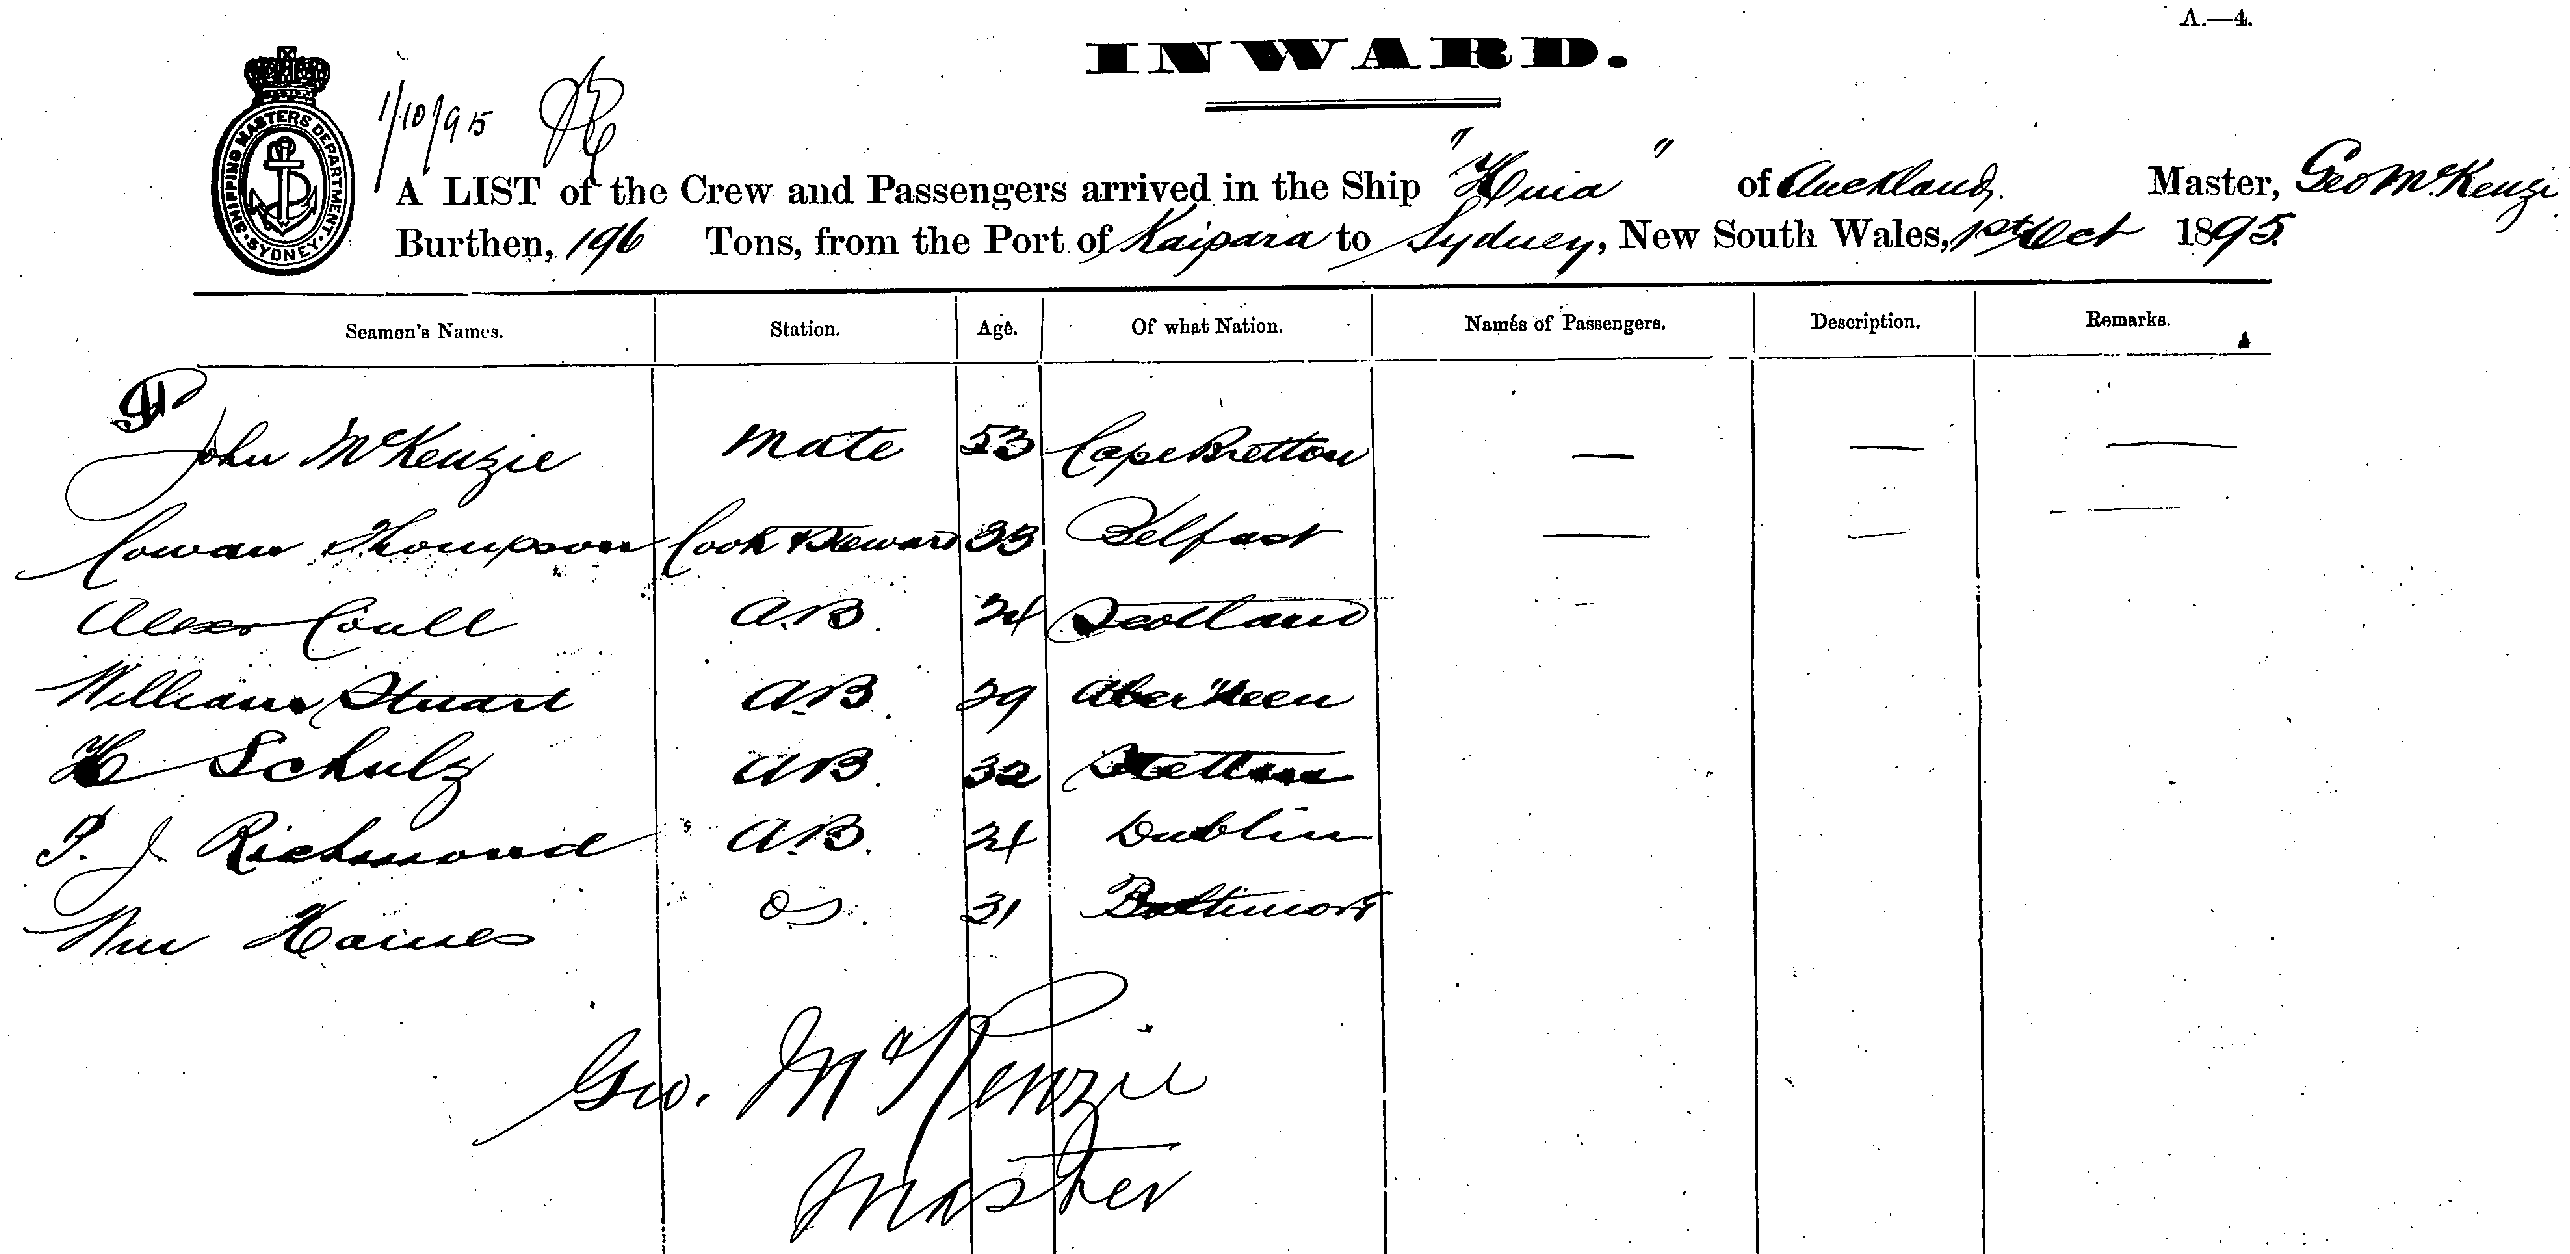 A.—4.
INWARD.
SHIPPING MASTERS DEPARTMENT. SYDNEY.
1/10/95
A LIST of the Crew and Passengers arrived in the Ship "Huia" of Auckland, Master, Geo McKenzi
Burthen, 196 Tons, from the Port of Kaipara to Sydney, New South Wales, 1st Oct 1895.
Seamen's Names. Station. Age. Of what Nation. Names of Passengers. Description. Remarks.
John McKenzie Mate 53 Cape Bretton — — —
Cowan Thompson Cook & Steward 33 Belfast — — —
Alexr Coull A.B. 24 Scotland —
William Stuart A.B. 29 Aberdeen
H Schulz A.B. 32 Stettin
P. J Richmond A.B. 24 Dublin
Wm Haines OS. 31 Baltimore
Geo. McKenzie
Master